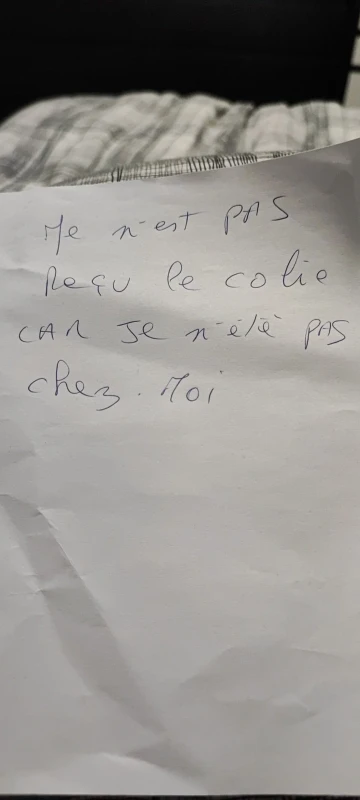 Je n'est PAS
Reçu le colie
CAR Je n'été PAS
chez. Moi